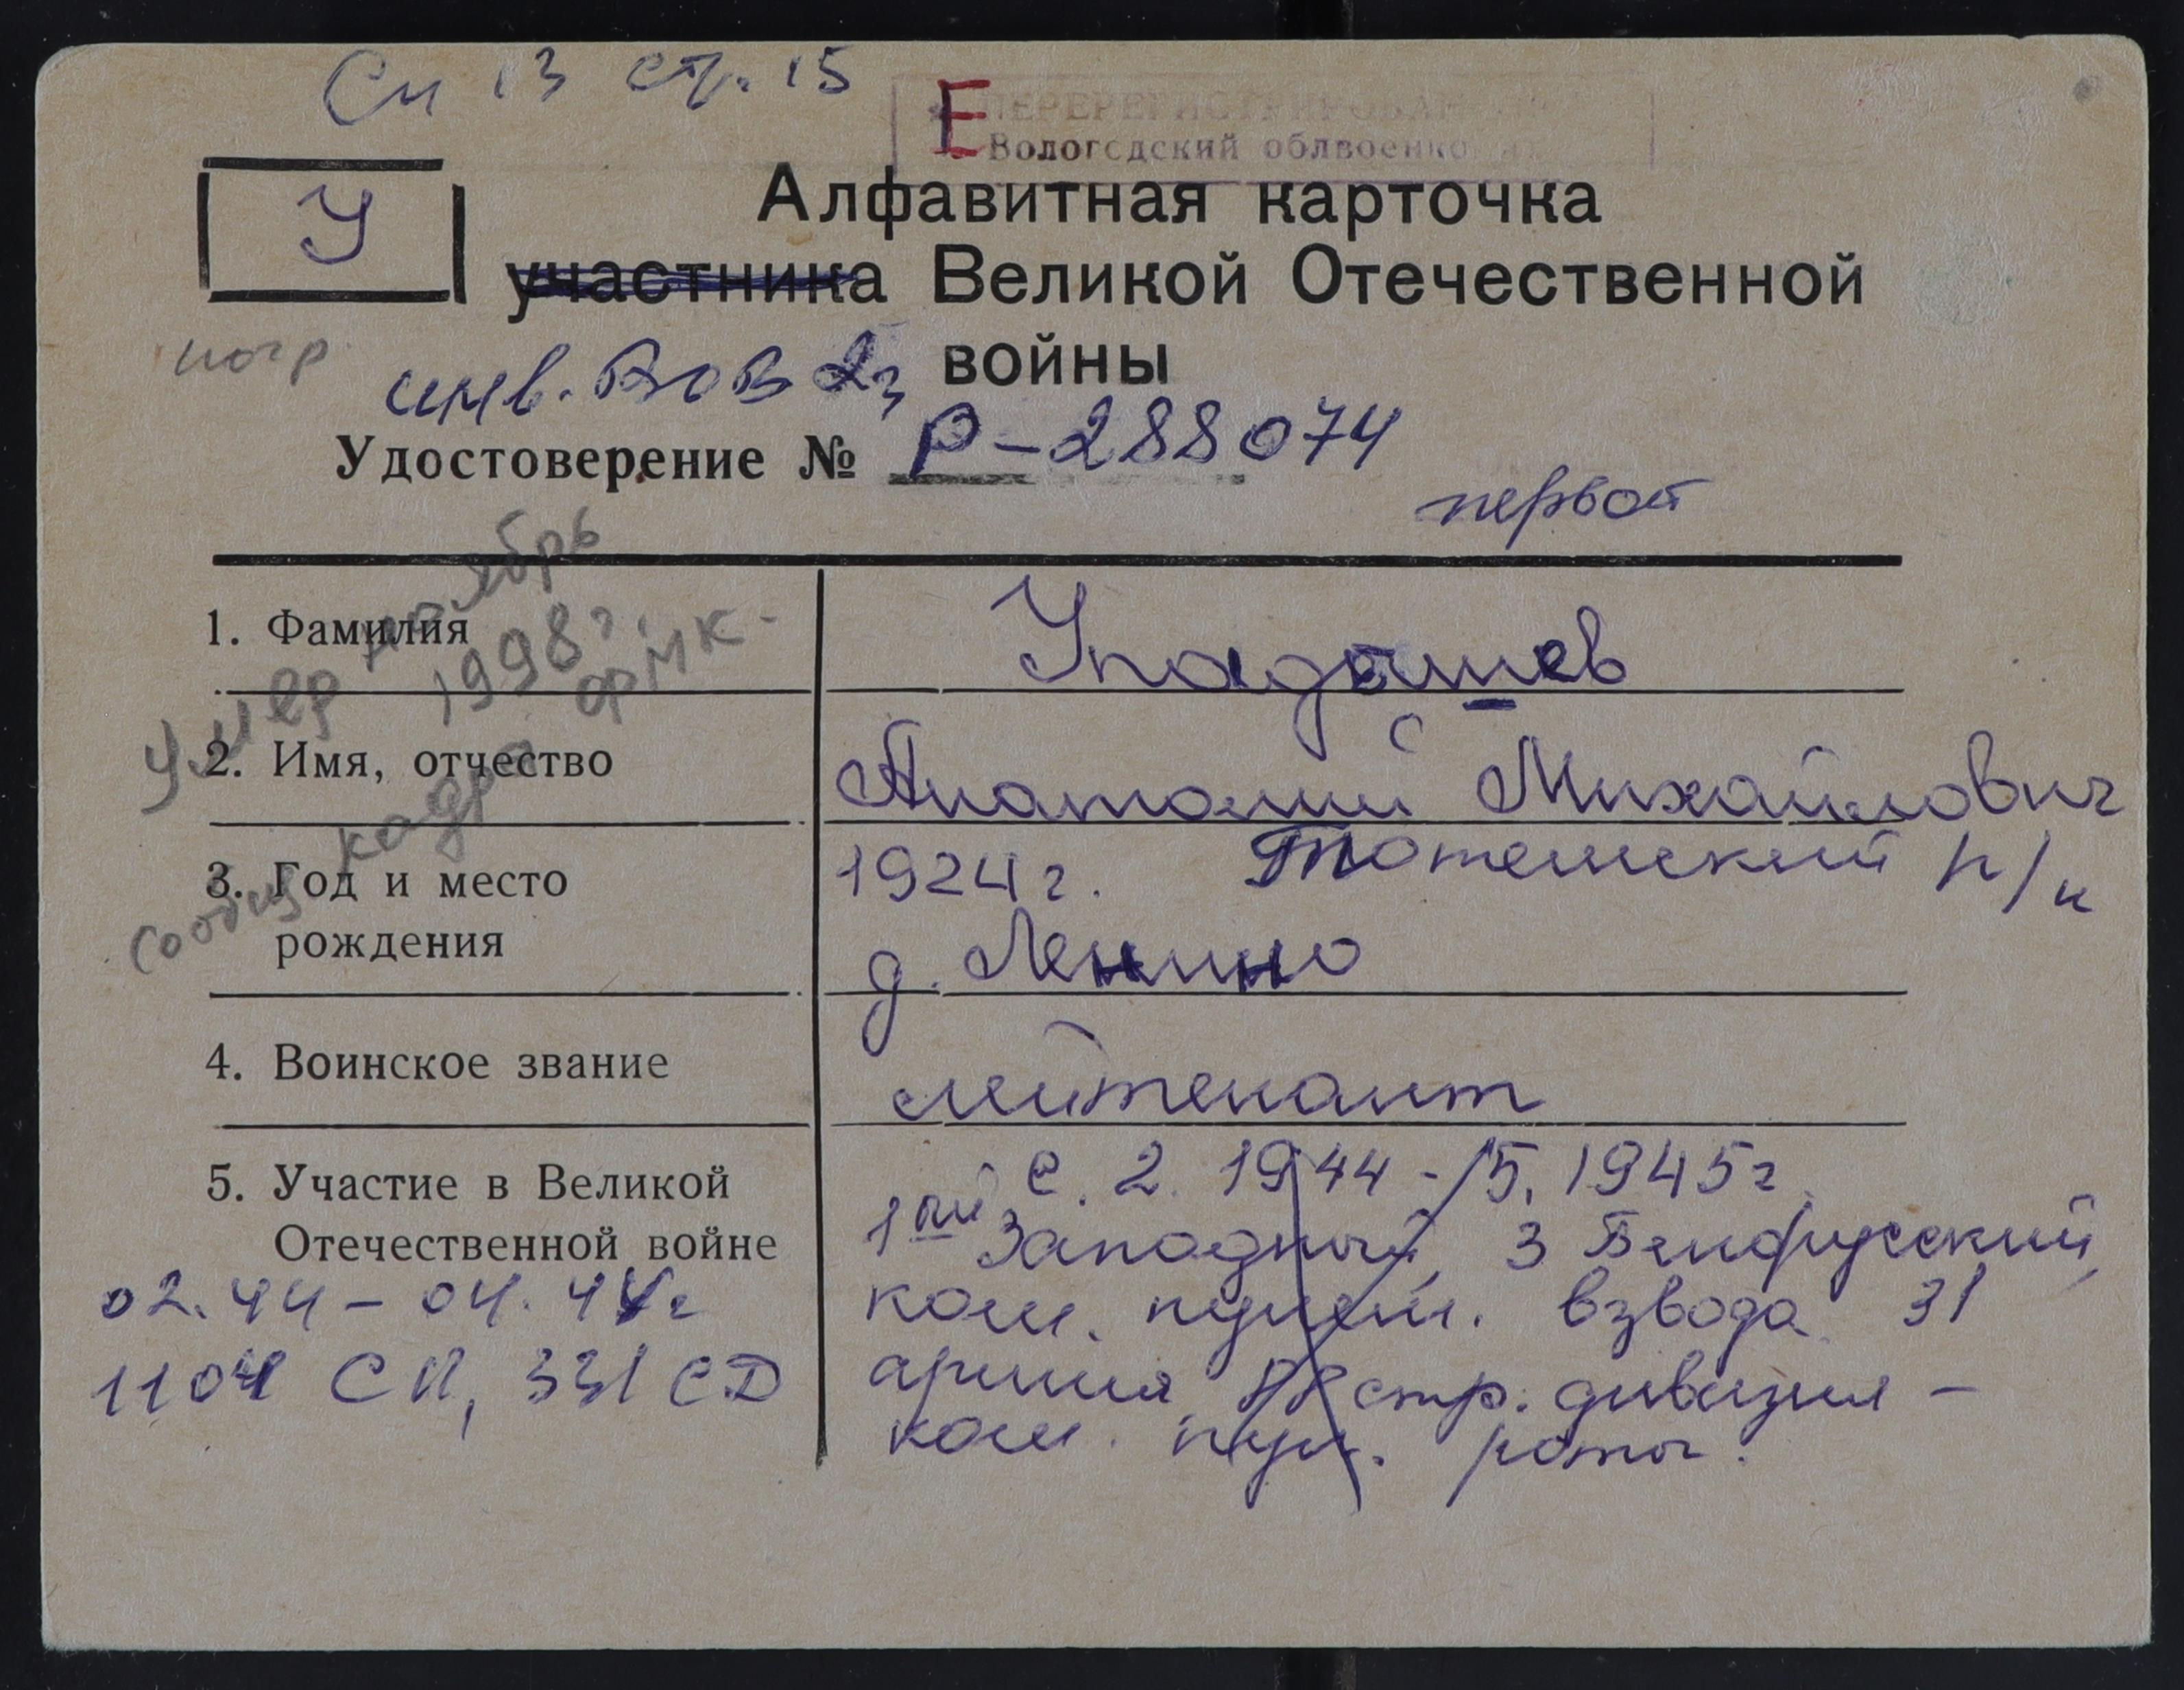 Сп 13 стр. 15
Е
ПЕРЕРЕГИСТРИРОВАН
Вологодский облвоенкомат
У
Алфавитная карточка
участника Великой Отечественной
войны
погр.
инв. ВОВ 2г
Удостоверение № Р-288074
первой
1. Фамилия Упадышев
2. Имя, отчество Анатолий Михайлович
3. Год и место рождения 1924г. Тотемский р/н
д. Ленино
4. Воинское звание лейтенант
5. Участие в Великой Отечественной войне
с. 2. 1944 - 5. 1945г.
1ый Западный, 3 Белорусский,
ком. пулем. взвода 31
армия 88 стр. дивизия -
ком. пул. роты.
02.44 - 04.44г
1104 СП, 331 СД
Умер ноябрь
1998г.
сообщ кадры ОРМК.